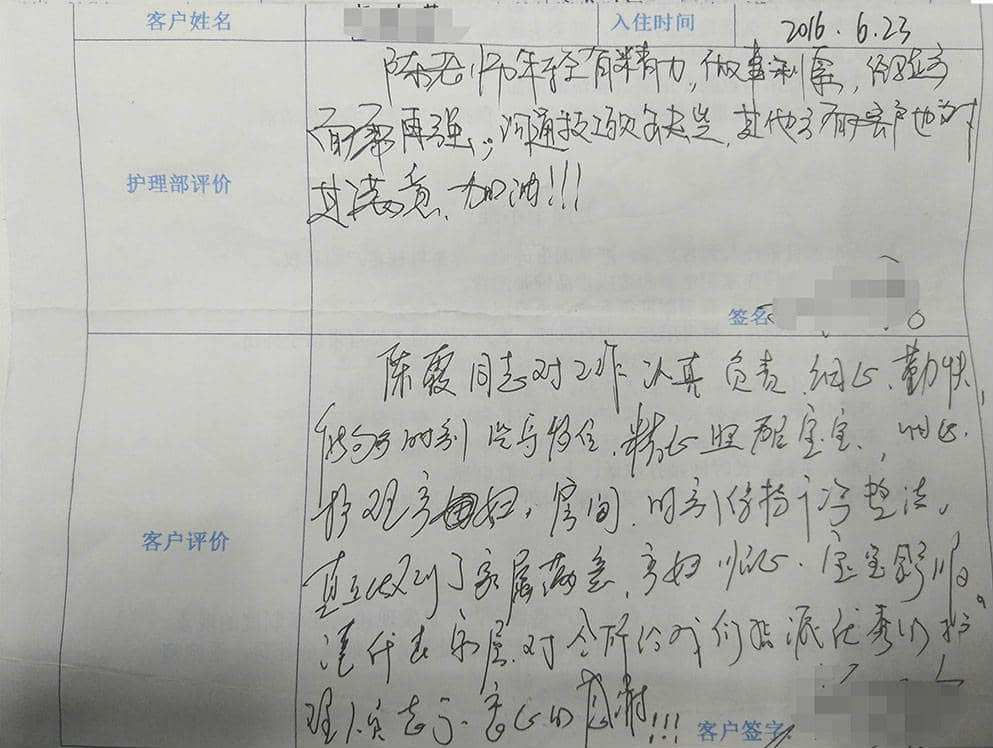 客户姓名 入住时间 2016.6.23
护理部评价
陈老师年轻有精力,做事利索,经验方
面需再强,沟通技巧欠缺些,其他方面客户也对
其满意,加油!!!
签名
客户评价
陈霞同志对工作认真负责、细心、勤快,
能够时刻 精心照顾宝宝、细心
护理产妇,房间时刻保持干净整洁。
真正做到了家属满意,产妇顺心、宝宝舒服。
谨代表家属对公司给我们指派优秀的护
理人员表示衷心的感谢!!!
客户签字